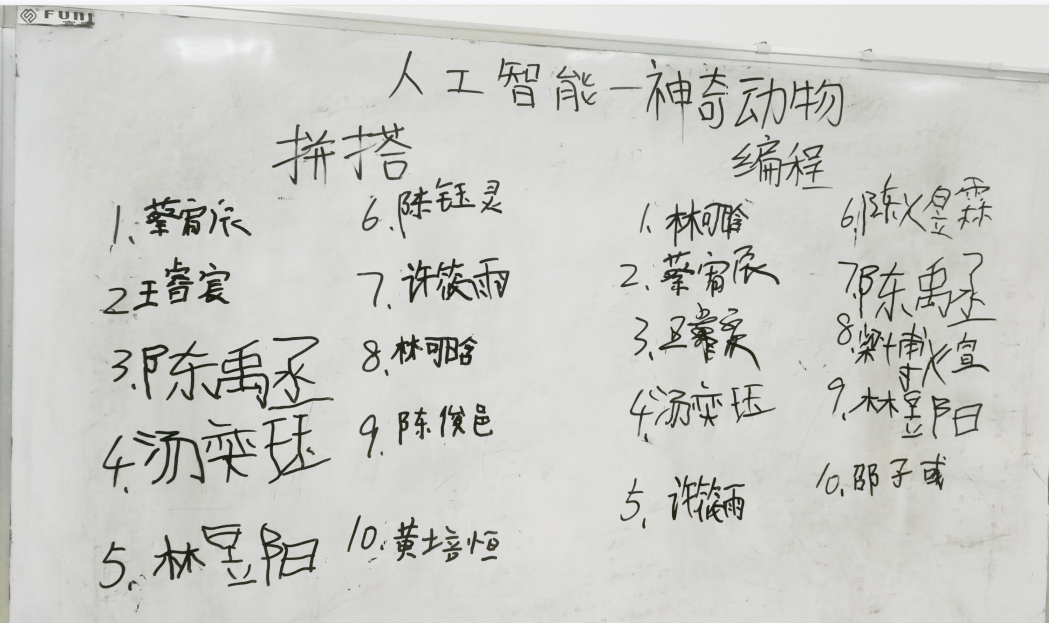 FUNI
人工智能一神奇动物
拼搭
1. 蔡宥辰
2 王睿宸
3. 陈东禹丞
4. 汤奕珏
5. 林昱阳
6. 陈钰灵
7. 许筱雨
8. 林可晗
9. 陈俊邑
10. 黄培恒
编程
1. 林可晗
2. 蔡宥辰
3.
4. 汤奕珏
5. 许筱雨
6. 陈义昱霖
7. 陈禹丞
8. 梁博宣
9. 林昱阳
10. 邵子彧